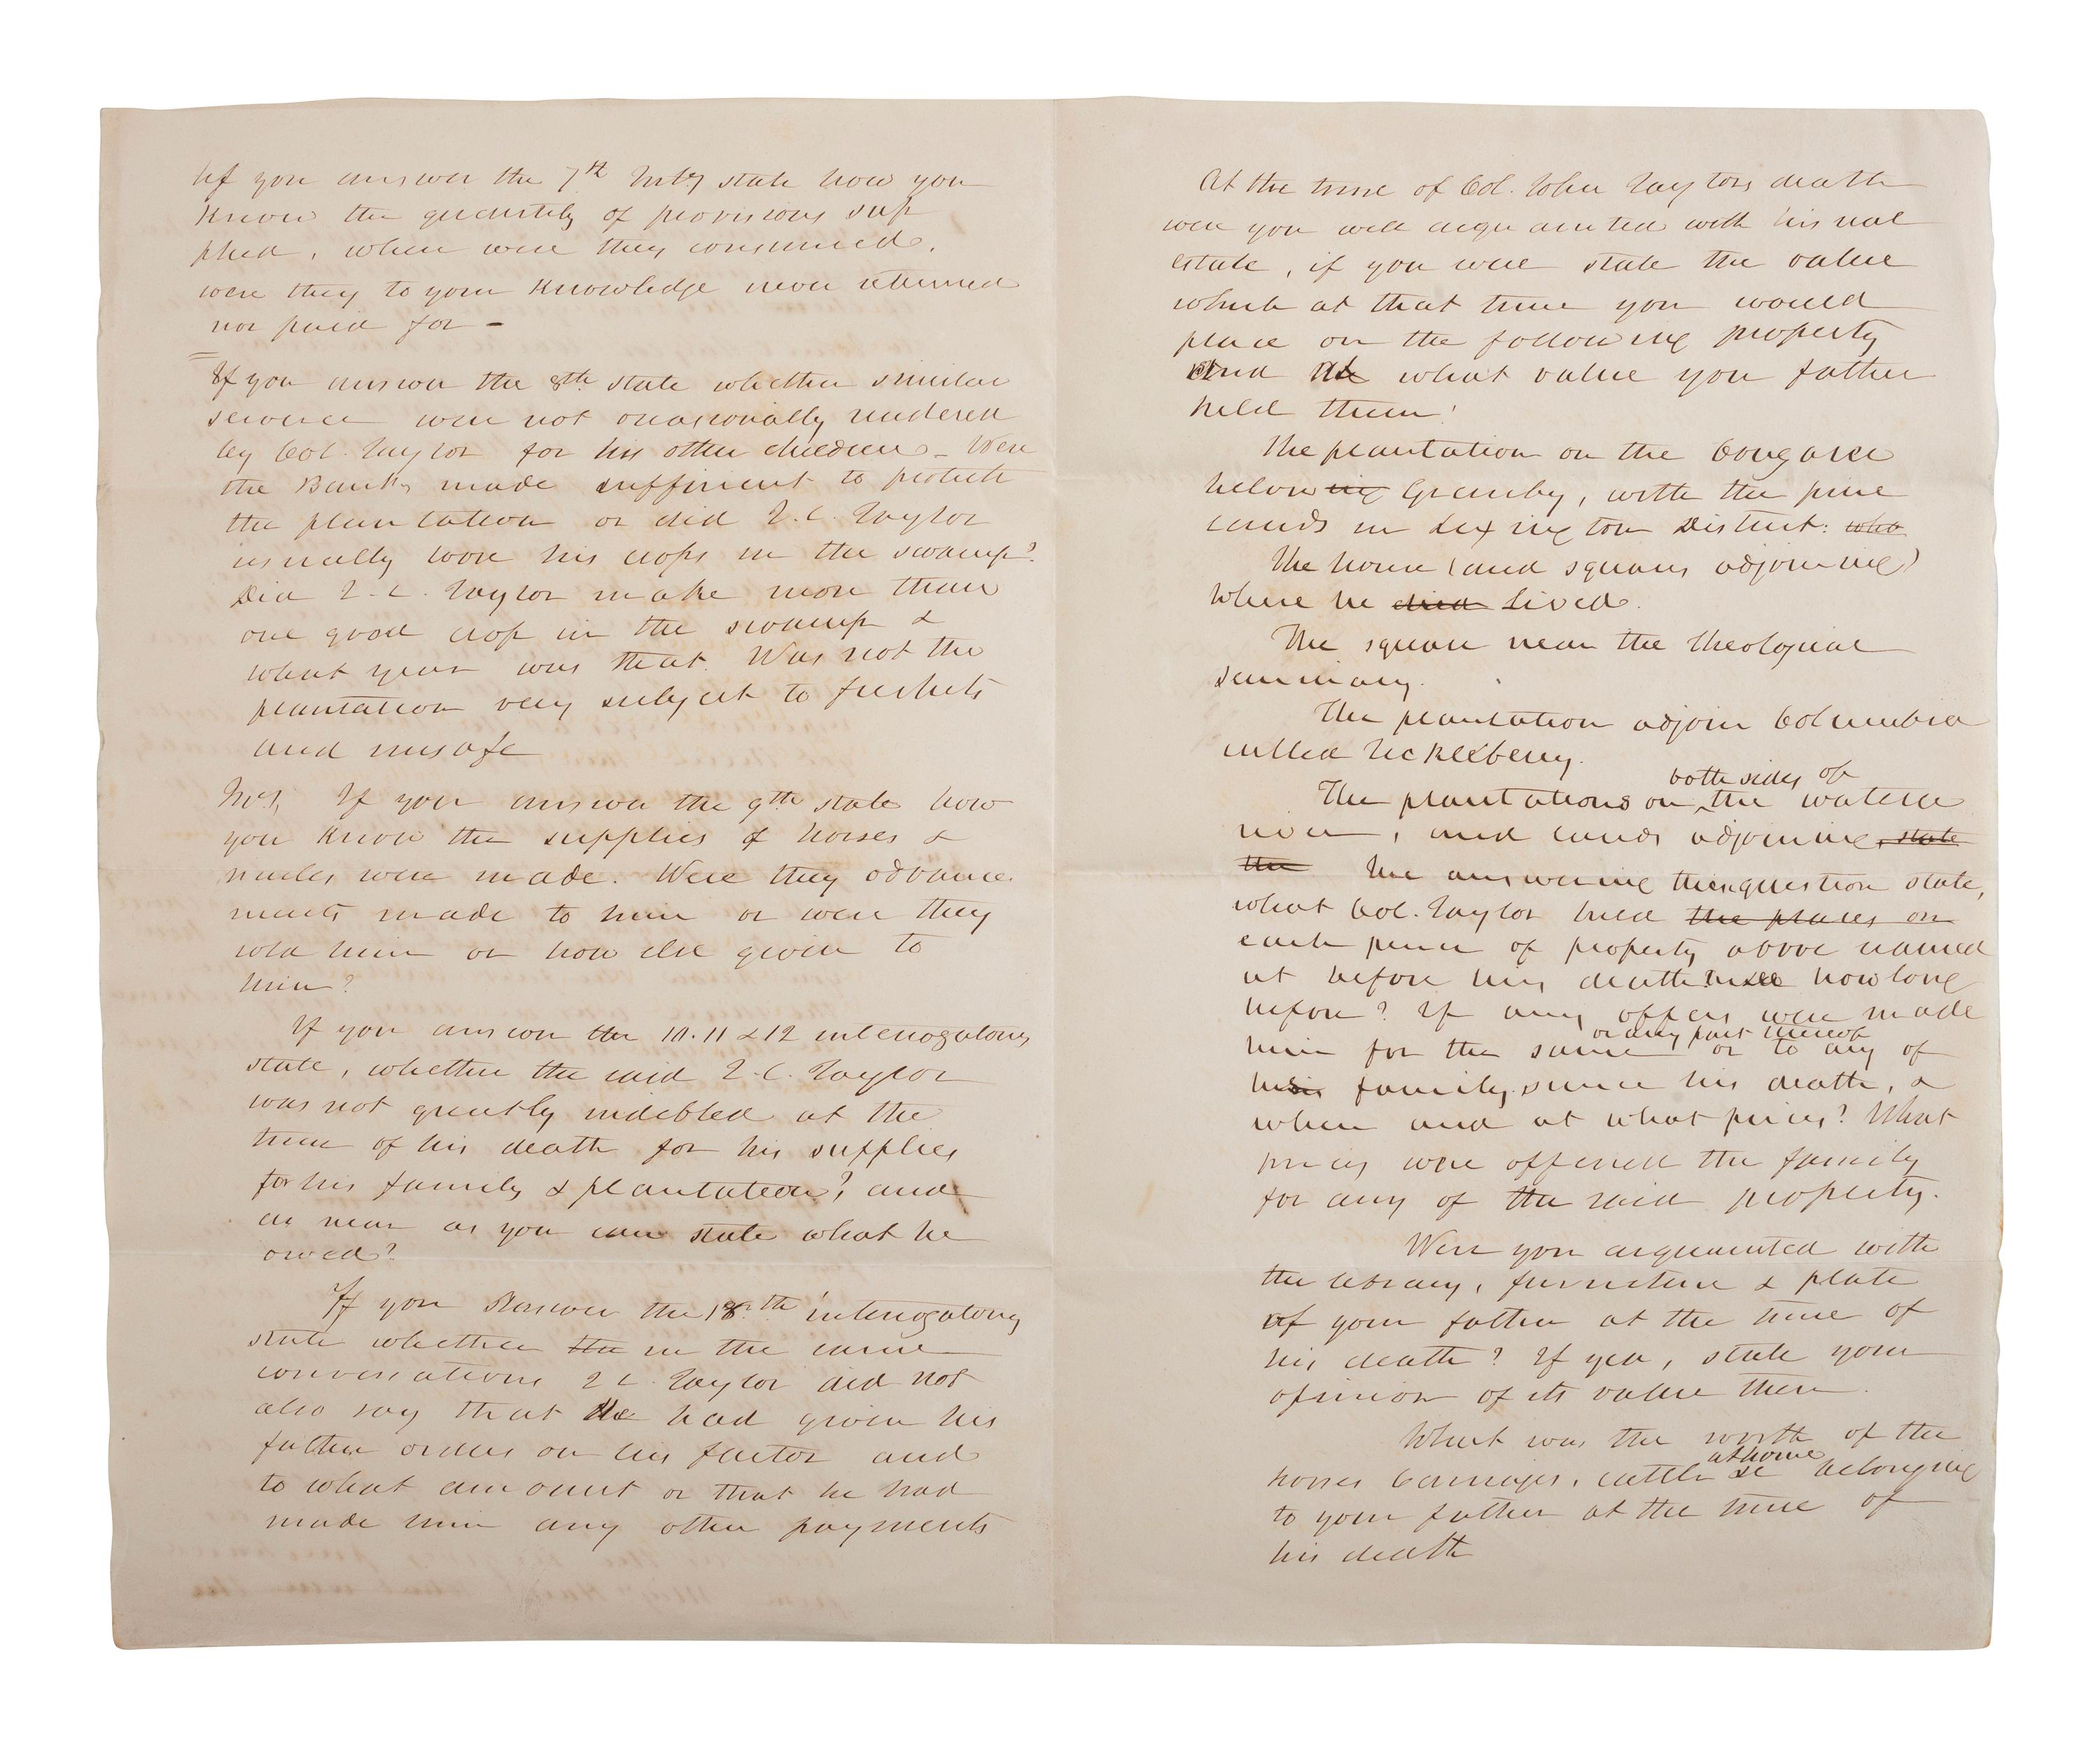 If you answer the 7th Inty state how you
know the quantity of provisions sup
plied, when were they consumed.
were they to your knowledge never returned
nor paid for -
If you answer the 8th state whether similar
services were not occasionally rendered
by Col. Taylor for his other children - Were
the Banks made sufficient to protect
the plantation or did J. C. Taylor
usually loose his crops in the swamp?
Did J. C. Taylor make more than
one good crop in the swamp &
what year was that. Was not the
plantation very subject to freshets
and unsafe
If you answer the 9th state how
you know the supplies of horses &
mules were made. Were they advance
ments made to him or were they
sold him or how else given to
him?
If you answer the 10. 11 & 12 interrogatories
state, whether the said J. C. Taylor
was not greatly indebted at the
time of his death for his supplies
for his family & plantation? and
as near as you can state what he
owed?
If you answer the 13th interrogatory
state whether the in the same
conversations J C. Taylor did not
also say that he had given his
father orders on his factor and
to what amount or that he had
made him any other payments
At the time of Col. John Taylors death
were you well acquainted with his real
estate, if you were state the value
which at that time you would
place on the following property
and at what value you father
held them!
The plantation on the Congaree
below Granby, with the pine
lands in Lexington District: who
The house (and squares adjoining)
where he died lived.
The square near the Theological
seminary.
The plantation adjoin Columbia
called Hickleberry.
both sides of
The plantations on the wateree
river, and lands adjoining, state
the The answering this question state,
what Col. Taylor held the places on
each piece of property above named
at before his death? how long
before? If any offers were made
or any part thereof
him for the same or to any of
his family since his death, &
when and at what prices? What
prices were offered the family
for any of the said property.
Were you acquainted with
the library, furniture & plate
of your father at the time of
his death? If yea, state your
opinion of its value then.
What was the worth of the
at home
horses Carriages, cattle &c belonging
to your father at the time of
his death